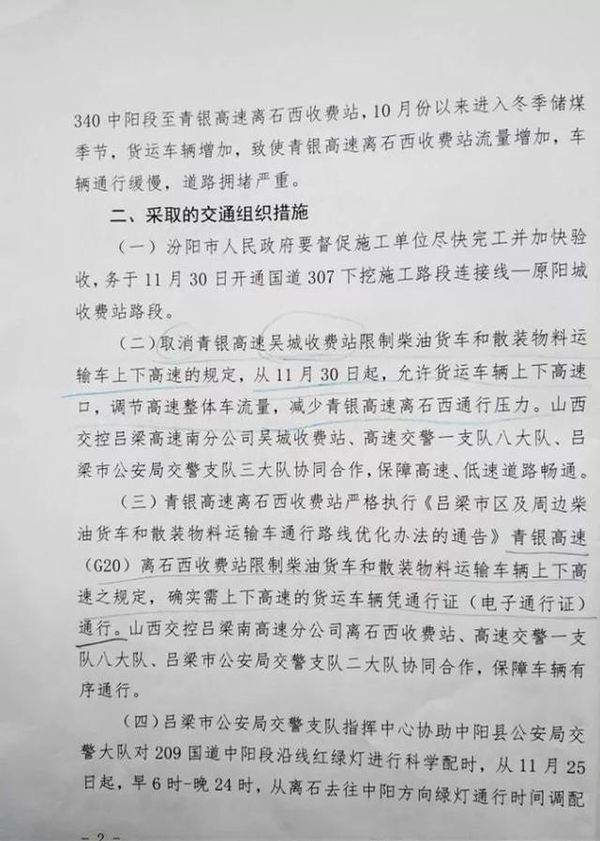 340 中阳段至青银高速离石西收费站，10 月份以来进入冬季储煤
季节，货运车辆增加，致使青银高速离石西收费站流量增加，车
辆通行缓慢，道路拥堵严重。
二、采取的交通组织措施
（一）汾阳市人民政府要督促施工单位尽快完工并加快验
收，务于 11 月 30 日开通国道 307 下挖施工路段连接线—原阳城
收费站路段。
（二）取消青银高速吴城收费站限制柴油货车和散装物料运
输车上下高速的规定，从 11 月 30 日起，允许货运车辆上下高速
口，调节高速整体车流量，减少青银高速离石西通行压力。山西
交控吕梁高速南分公司吴城收费站、高速交警一支队八大队、吕
梁市公安局交警支队三大队协同合作，保障高速、低速道路畅通。
（三）青银高速离石西收费站严格执行《吕梁市区及周边柴
油货车和散装物料运输车通行路线优化办法的通告》青银高速
（G20）离石西收费站限制柴油货车和散装物料运输车辆上下高
速之规定，确实需上下高速的货运车辆凭通行证（电子通行证）
通行。山西交控吕梁南高速分公司离石西收费站、高速交警一支
队八大队、吕梁市公安局交警支队二大队协同合作，保障车辆有
序通行。
（四）吕梁市公安局交警支队指挥中心协助中阳县公安局交
警大队对 209 国道中阳段沿线红绿灯进行科学配时，从 11 月 25
日起，早 6 时-晚 24 时，从离石去往中阳方向绿灯通行时间调配
- 2 -